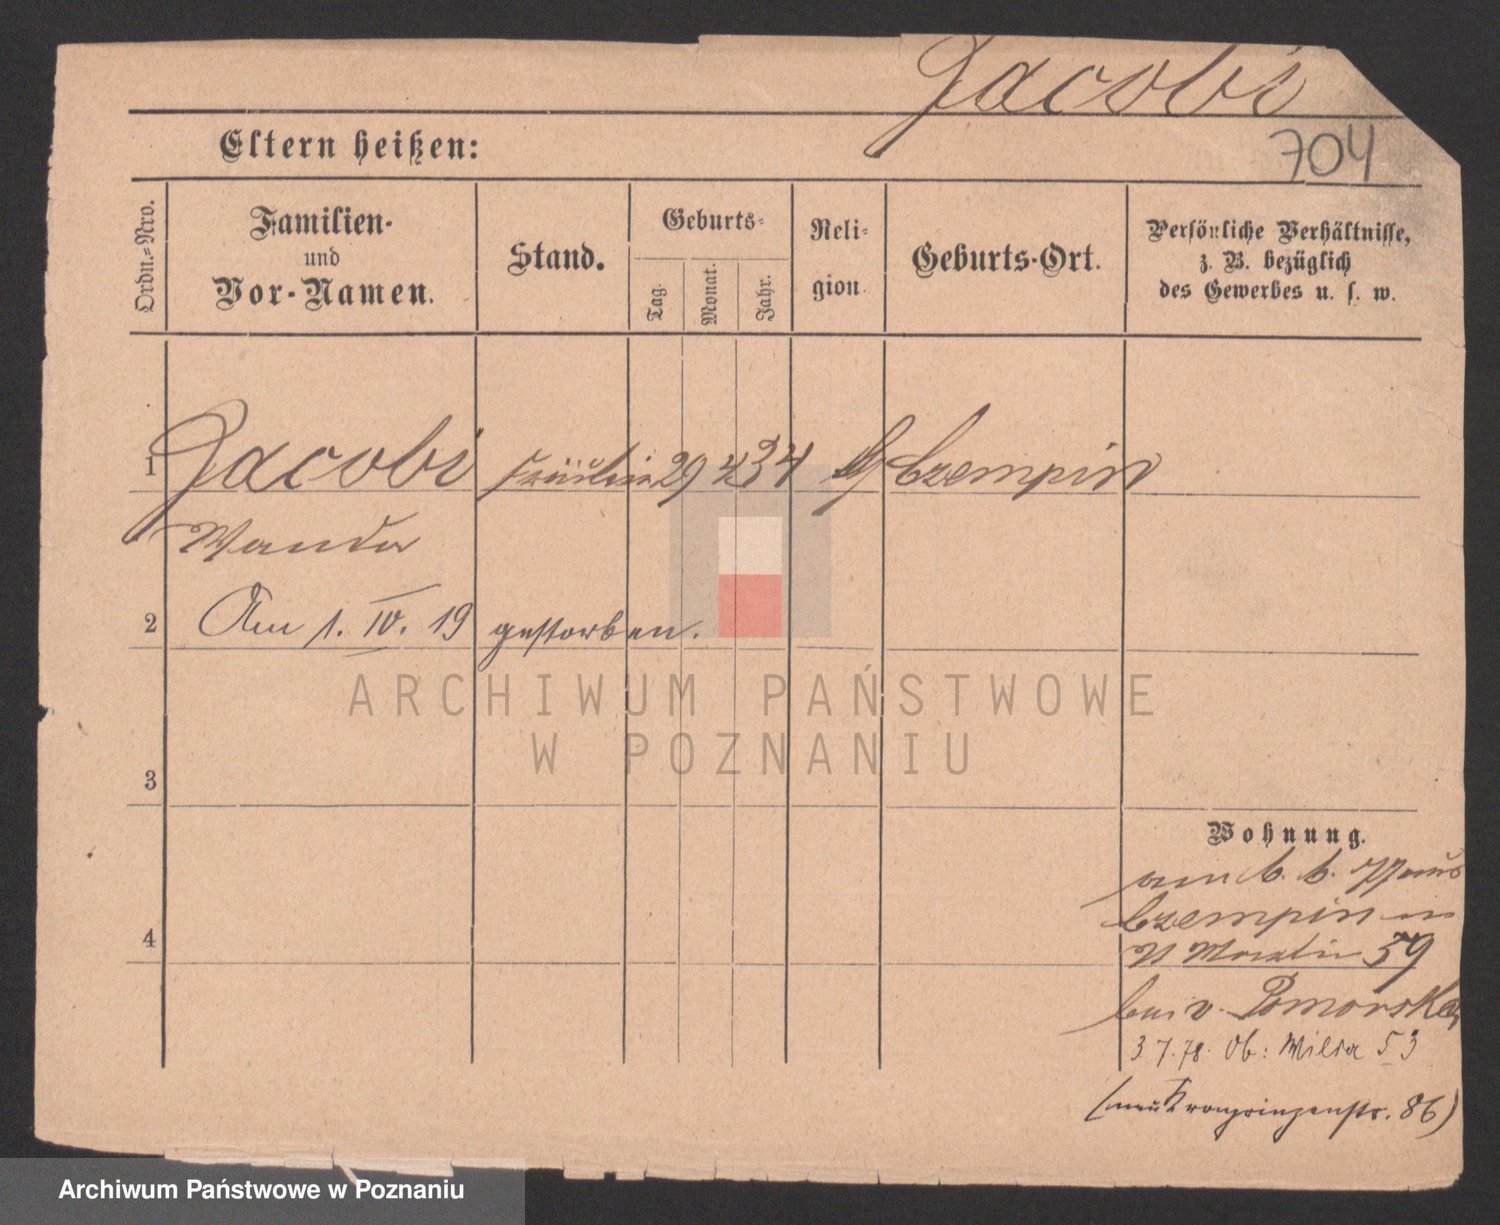 Jacobi
704
Eltern heißen:
Ordn.-Nro.
Familien-
und
Vor-Namen.
Stand.
Geburts-
Tag.
Monat.
Jahr.
Reli-
gion.
Geburts-Ort.
Persönliche Verhältnisse,
z. B. bezüglich
des Gewerbes u. s. w.
1
Jacobi Fräulein 29 4 34 Czempin
Wanda
2
Am 1. IV. 19 gestorben.
ARCHIWUM PAŃSTWOWE
W POZNANIU
3
Wohnung.
Czempin
4
59
v. Pomorska
3 7. 78. Ob: Wilda 53
(neu Kronprinzenstr. 86)
Archiwum Państwowe w Poznaniu